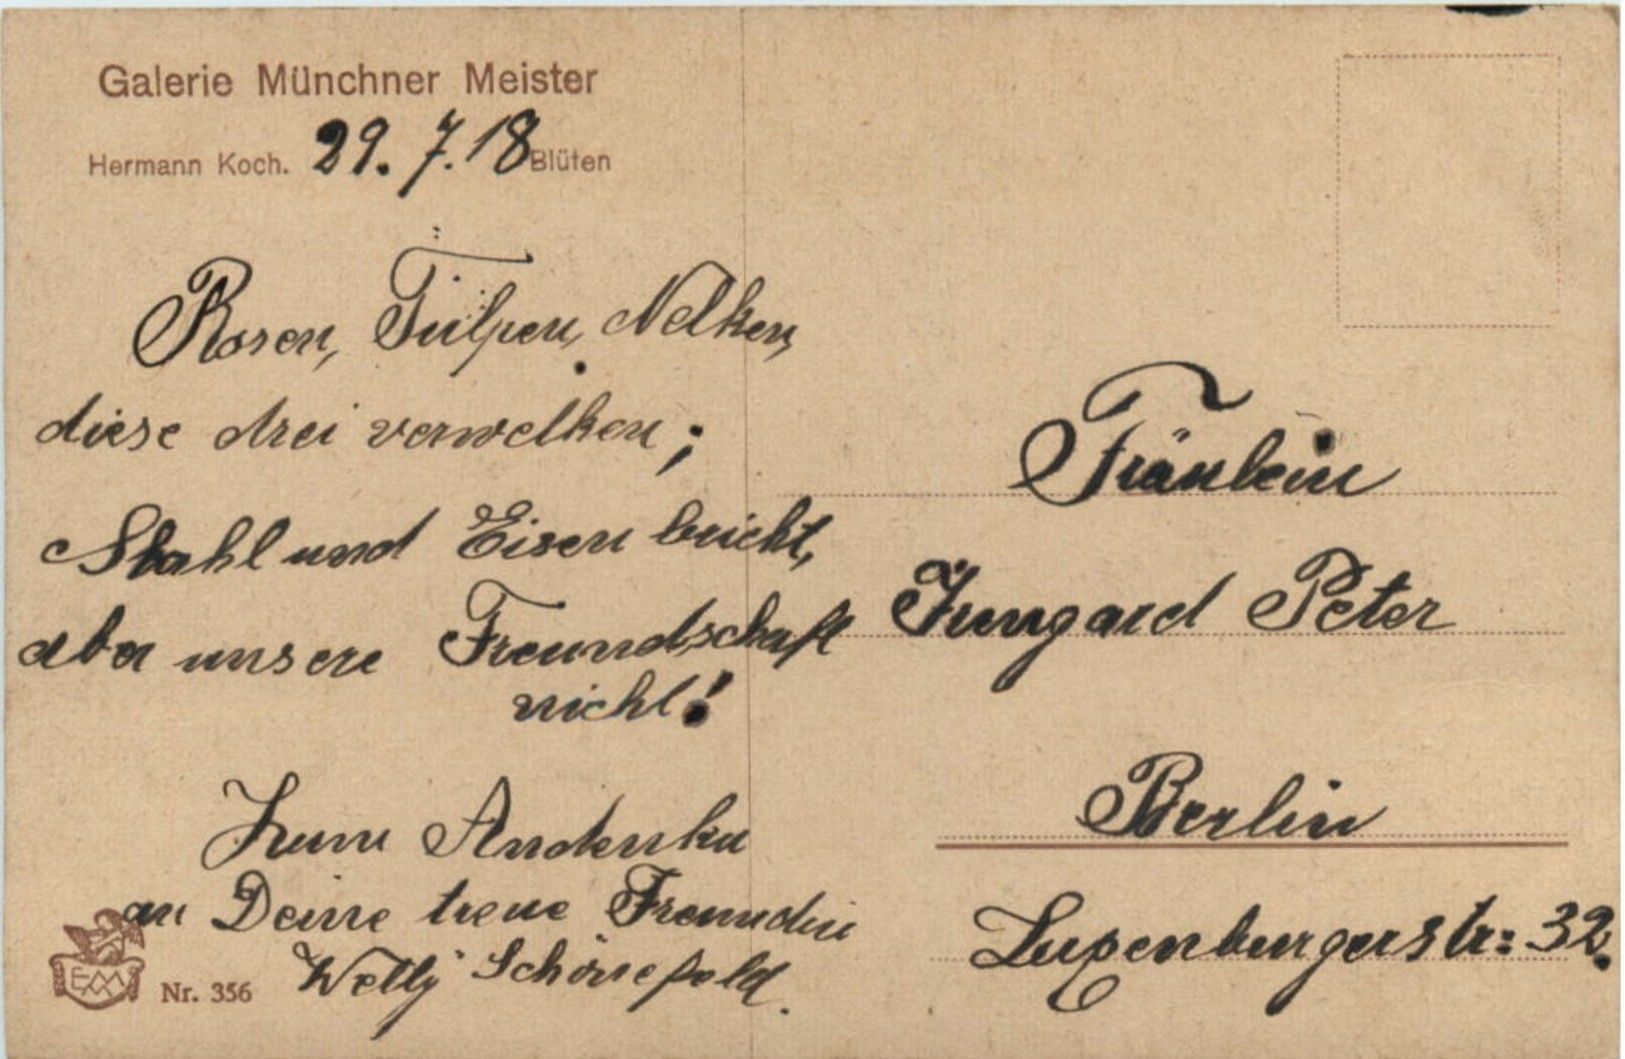 Galerie Münchner Meister
29. 7. 18
Hermann Koch. Blüten
Rosen, Tülpen, Nelken,
diese drei verwelken;
Stahl und Eisen bricht,
aber unsere Freundschaft
nicht!
Zum Andenken
an Deine treue Freundin
Schönefeld.
EMM
Nr. 356
Fräulein
Irmgard Peter
Berlin
Luxenburgerstr: 32.